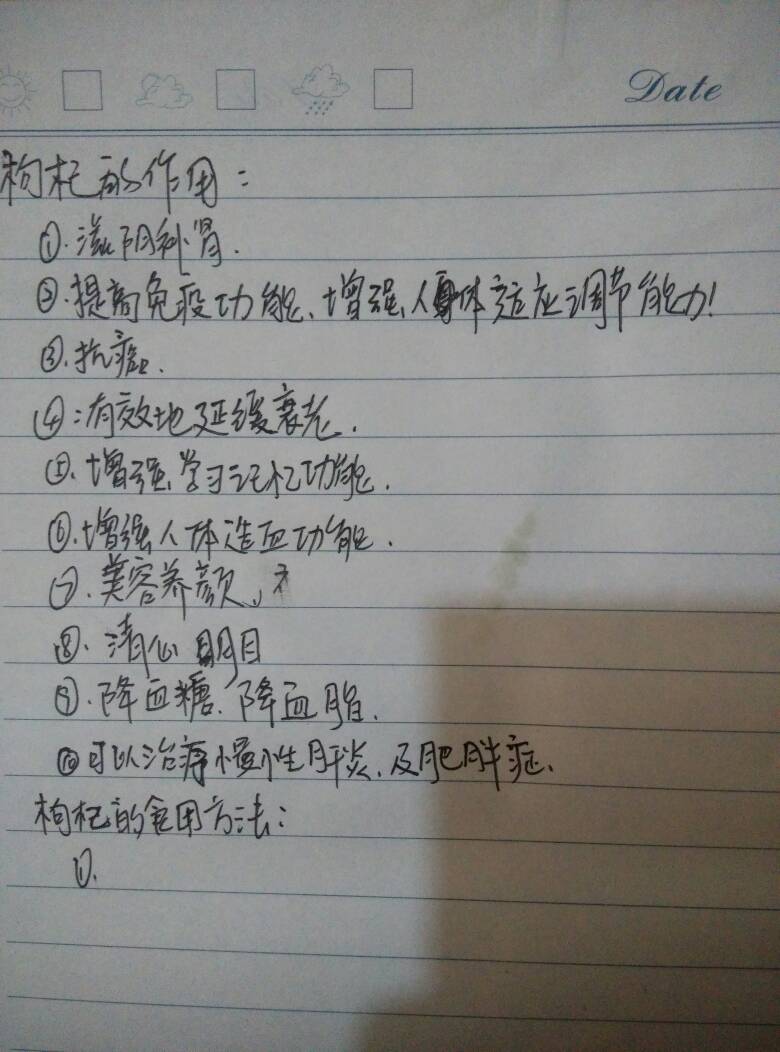 Date
枸杞的作用:
①.滋阴补肾.
②.提高免疫功能、增强人体适应调节能力!
③.抗癌.
④:有效地延缓衰老.
⑤.增强学习记忆功能.
⑥.增强人体造血功能.
⑦.美容养颜、
⑧.清心明目
⑨.降血糖、降血脂.
⑩可以治疗慢性肝炎、及肥胖症.
枸杞的食用方法:
①.